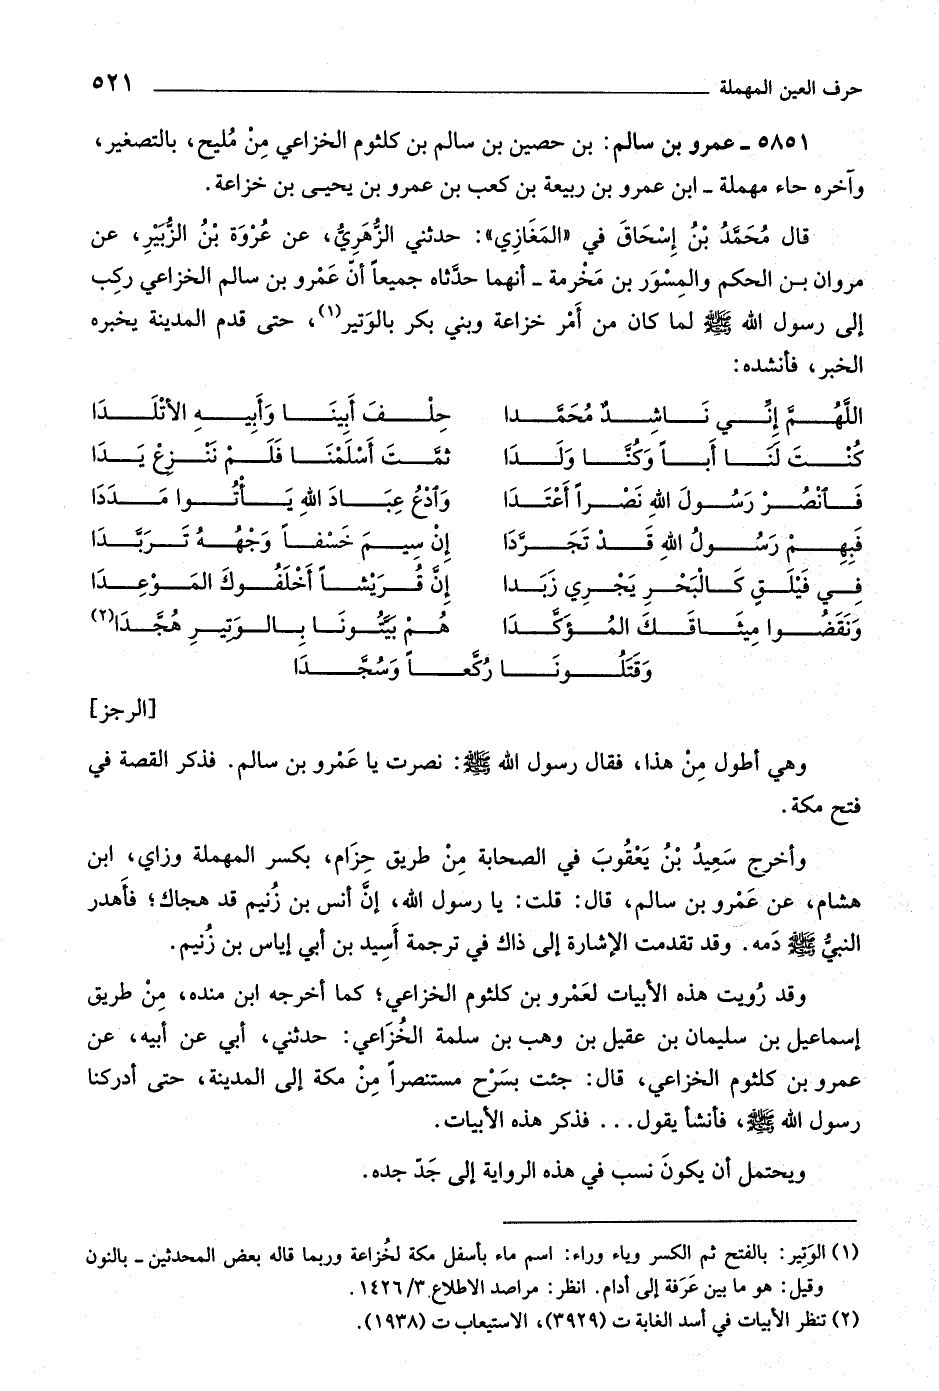 حرف العين المهملة ٥٢١
٥٨٥١ ـ عمرو بن سالم: بن حصين بن سالم بن كلثوم الخزاعي مِنْ مُليح، بالتصغير،
وآخره حاء مهملة ـ ابن عمرو بن ربيعة بن كعب بن عمرو بن يحيى بن خزاعة.
قال مُحَمَّدُ بْنُ إِسْحَاقَ في «المَغَازِي»: حدثني الزُّهَرِيُّ، عن عُرْوَة بْنُ الزُّبَيْرِ، عن
مروان بن الحكم والمِسْوَر بن مَخْرمة ـ أنهما حدَّثاه جميعاً أنّ عَمْرو بن سالم الخزاعي ركِب
إلى رسول الله ﷺ لما كان من أَمْر خزاعة وبني بكر بالوَتير(١)، حتى قدم المدينة يخبره
الخبر، فأنشده:
اللَّهُمَّ إِنِّي نَاشِدٌ مُحَمَّدا حِلْفَ أَبِينَا وَأَبِيهِ الأتْلَدَا
كُنْتَ لَنَا أَباً وَكُنَّا وَلَدَا ثمَّتَ أَسْلَمْنَا فَلَمْ نَنْزِعْ يَدَا
فَٱنْصُرْ رَسُولَ اللهِ نَصْراً أَعْتَدَا وَٱدْعُ عِبَادَ اللهِ يَأْتُوا مَدَدَا
فَبِهِمْ رَسُولُ اللهِ قَدْ تَجَرَّدَا إِنْ سِيمَ خَسْفاً وَجْهُهُ تَرَبَّدَا
فِي فَيْلَقٍ كَالْبَحْرِ يَجْرِي زَبَدا إِنَّ قُرَيْشاً أَخْلَفُوكَ المَوْعِدَا
وَنَقَضُوا مِيثَاقَكَ المُؤَكَّدَا هُمْ بَيَّتُونَا بِالوَتِيرِ هُجَّدَا(٢)
وَقَتَلُونَا رُكَّعاً وَسُجَّدَا
[الرجز]
وهي أطول مِنْ هذا، فقال رسول الله ﷺ: نصرت يا عَمْرو بن سالم. فذكر القصة في
فتح مكة.
وأخرج سَعِيدُ بْنُ يَعْقُوبَ في الصحابة مِنْ طريق حِزَام، بكسر المهملة وزاي، ابن
هشام، عن عَمْرو بن سالم، قال: قلت: يا رسول الله، إنَّ أنس بن زُنيم قد هجاك؛ فأَهدر
النبيُّ ﷺ دَمه. وقد تقدمت الإشارة إلى ذاك في ترجمة أَسِيد بن أبي إياس بن زُنيم.
وقد رُويت هذه الأبيات لعَمْرو بن كلثوم الخزاعي؛ كما أخرجه ابن منده، مِنْ طريق
إسماعيل بن سليمان بن عقيل بن وهب بن سلمة الخُزَاعي: حدثني، أبي عن أبيه، عن
عمرو بن كلثوم الخزاعي، قال: جئت بسَرْح مستنصراً مِنْ مكة إلى المدينة، حتى أدركنا
رسول الله ﷺ، فأنشأ يقول... فذكر هذه الأبيات.
ويحتمل أن يكونَ نسب في هذه الرواية إلى جَدّ جده.
(١) الوَتِير: بالفتح ثم الكسر وياء وراء: اسم ماء بأسفل مكة لخُزاعة وربما قاله بعض المحدثين ـ بالنون
وقيل: هو ما بين عَرَفة إلى أدام. انظر: مراصد الاطلاع ٣/ ١٤٢٦.
(٢) تنظر الأبيات في أسد الغابة ت (٣٩٢٩)، الاستيعاب ت (١٩٣٨).